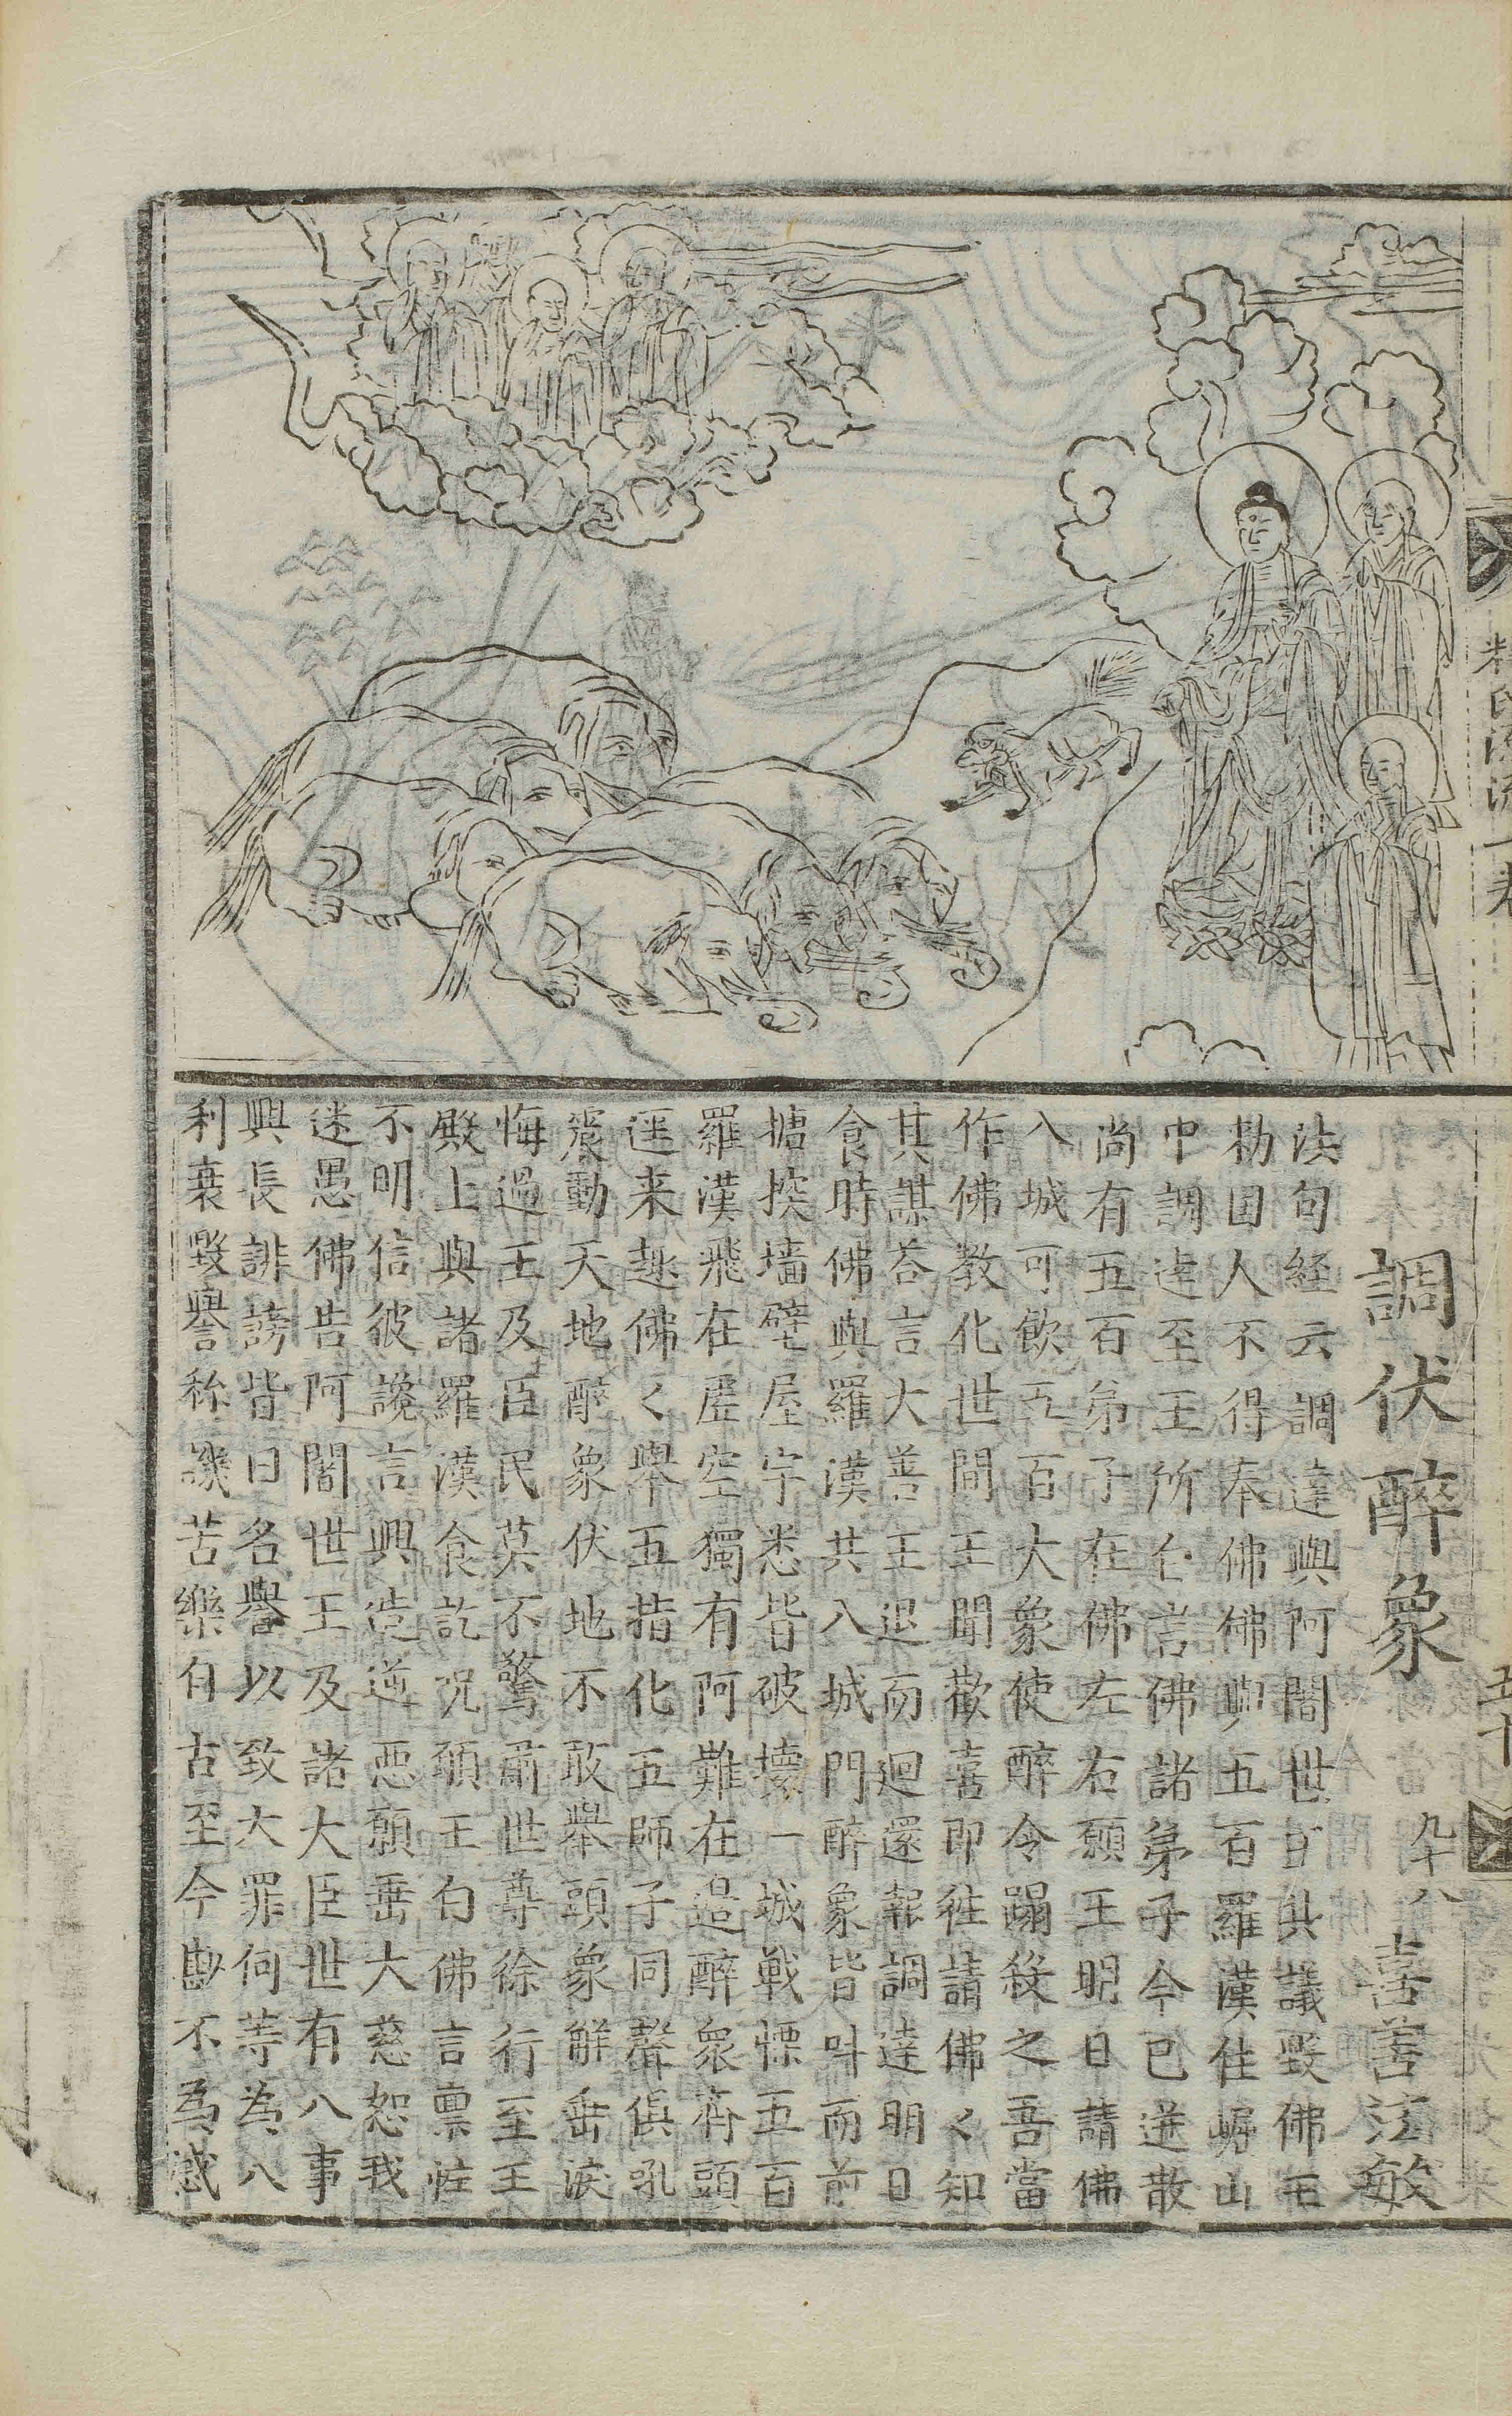 調伏醉象 九十八 喜善法敏
法句経云調達與阿闍世王共議毀佛王
勑国人不得奉佛佛與五百羅漢住崛山
中調達至王所白言佛諸弟子今已迸散
尚有五百弟子在佛左右願王明日請佛
入城可飲五百大象使醉令蹋殺之吾當
作佛教化世間王聞歡喜即往請佛々知
其謀荅言大善王退而迴還報調達明日
食時佛與羅漢共入城門醉象皆呌而前
搪揬墙壁屋宇悉皆破壊一城戦慄五百
羅漢飛在虛空獨有阿難在邉醉象齊頭
逕来趣佛々舉五指化五師子同聲俱吼
震動天地醉象伏地不敢舉頭象觧垂淚
悔過王及臣民莫不驚肅世尊徐行至王
殿上與諸羅漢食訖咒願王白佛言禀性
不明信彼讒言興造逆惡願垂大慈恕我
迷愚佛告阿闍世王及諸大臣世有八事
興長誹謗皆曰名譽以致大罪何等為八
利衰毀譽称譏苦樂自古至今尠不為惑
釋氏源流一卷
五十